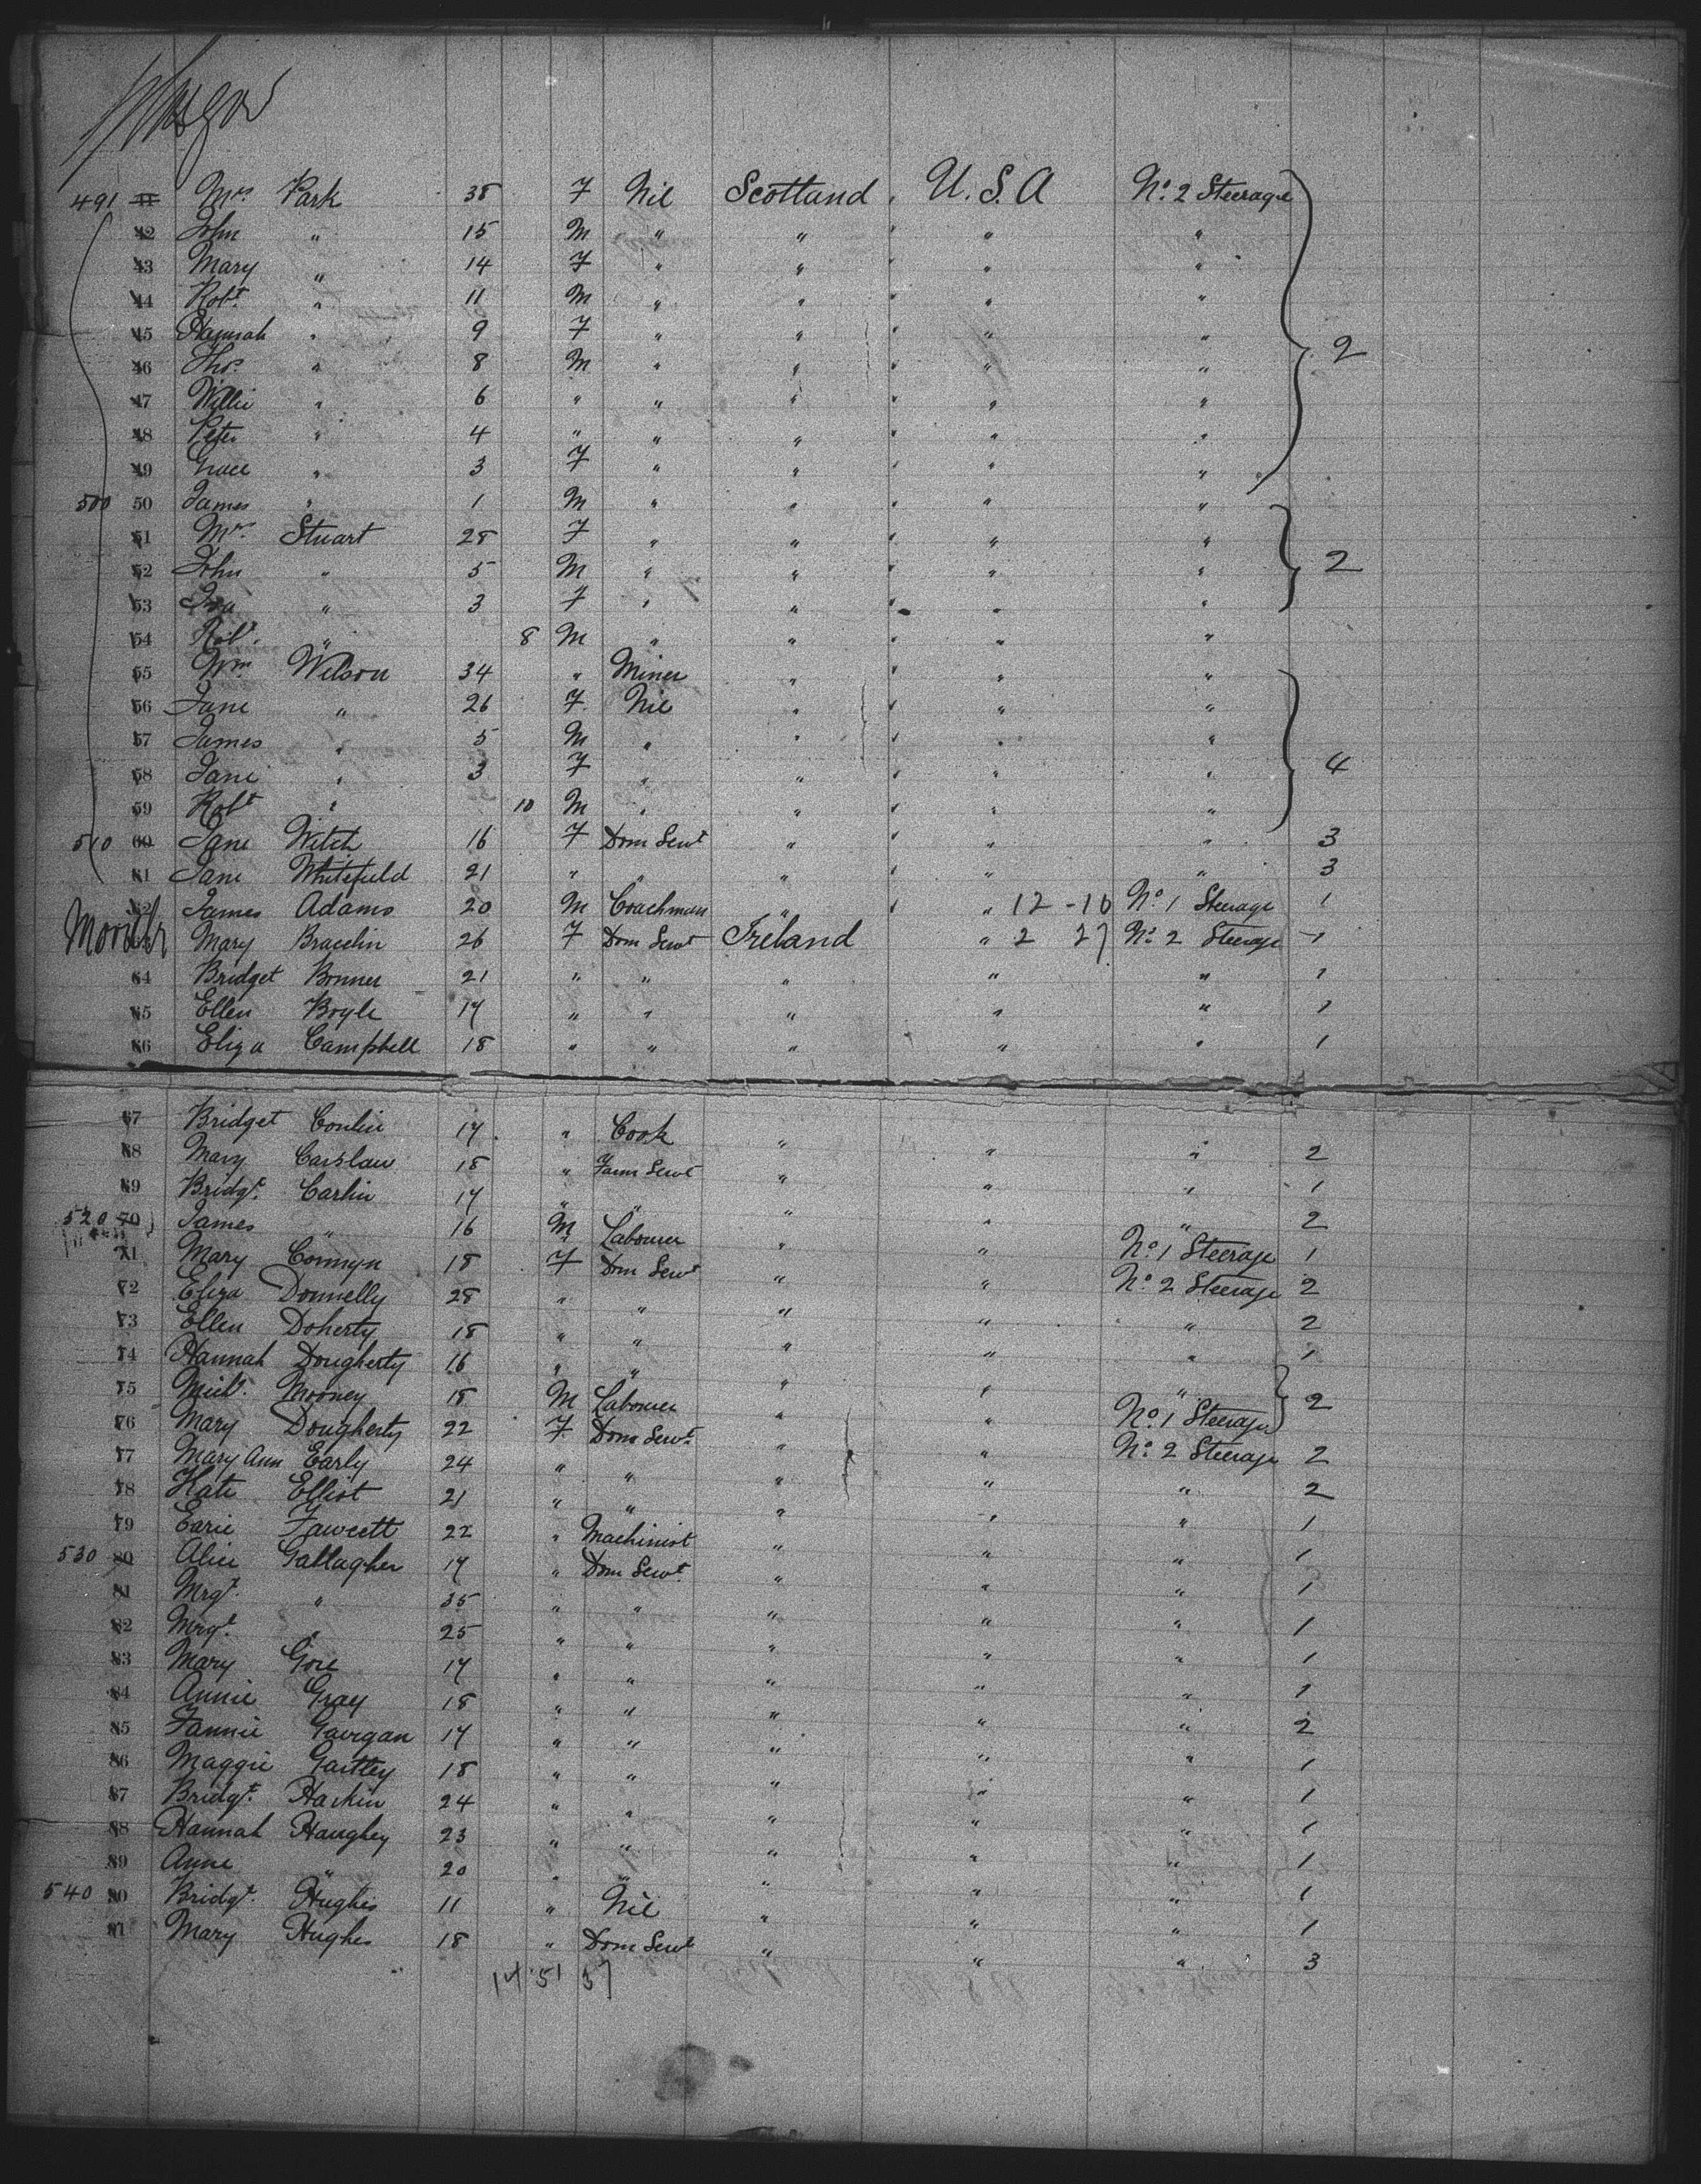 Glasgow
491 41 Mrs. Park 38 F Nil Scotland U.S.A No. 2 Steerage
42 John " 15 M " " " "
43 Mary " 14 F " " " "
44 Robt. " 11 M " " " "
45 Hannah " 9 F " " " "
46 Thos. " 8 M " " " " 2
47 Willie " 6 " " " " "
48 Peter " 4 " " " " "
49 Grace " 3 F " " " "
500 50 James " 1 M " " " "
51 Mrs. Stuart 28 F " " " "
52 John " 5 M " " " " 2
53 " 3 F " " " "
54 Robt. " 8 M " " " "
55 Wm. Wilson 34 " Miner " " "
56 Jane " 26 F Nil " " "
57 James " 5 M " " " "
58 Jane " 3 F " " " " 4
59 Robt " 10 M " " " "
510 60 Jane Veitch 16 F Dom Servt " " " 3
61 Jane Whitefield 21 " " " " " 3
62 James Adams 20 M Coachman " " 12-10 No. 1 Steerage 1
Moville 63 Mary Bracelin 26 F Dom Servt Ireland " 2 27 No. 2 Steerage 1
64 Bridget Bonner 21 " " " " " 1
65 Ellen Boyle 17 " " " " " 1
66 Eliza Campbell 18 " " " " " 1
67 Bridget Conlin 17 " Cook " " " 2
68 Mary Carslaw 18 " Farm Servt " " " 1
69 Bridgt. Carlin 17 " " " " " 2
520 70 James " 16 M Labourer " " No. 1 Steerage 1
71 Mary Conmyn 18 F Dom Servt " " No. 2 Steerage 2
72 Eliza Donnelly 28 " " " " " 2
73 Ellen Doherty 18 " " " " " 1
74 Hannah Dougherty 16 " " " " "
75 Michl. Mooney 18 M Labourer " " No. 1 Steerage 2
76 Mary Dougherty 22 F Dom Servt. " " No. 2 Steerage 2
77 Mary Ann Early 24 " " " " " 2
78 Kate Elliot 21 " " " " " 1
79 Earie Fawcett 22 " Machinist " " " 1
530 80 Alice Gallagher 17 " Dom Servt. " " " 1
81 Mrgt. " 35 " " " " " 1
82 Mrgt. " 25 " " " " " 1
83 Mary Gore 17 " " " " " 1
84 Annie Gray 18 " " " " " 2
85 Fannie Gavigan 17 " " " " " 1
86 Maggie Gartley 18 " " " " " 1
87 Bridgt. Harkin 24 " " " " " 1
88 Hannah Haughey 23 " " " " " 1
89 Anne " 20 " " " " " 1
540 90 Bridgt. Hughes 11 " Nil " " " 1
91 Mary Hughes 18 " Dom Servt " " " 3
14 51 37